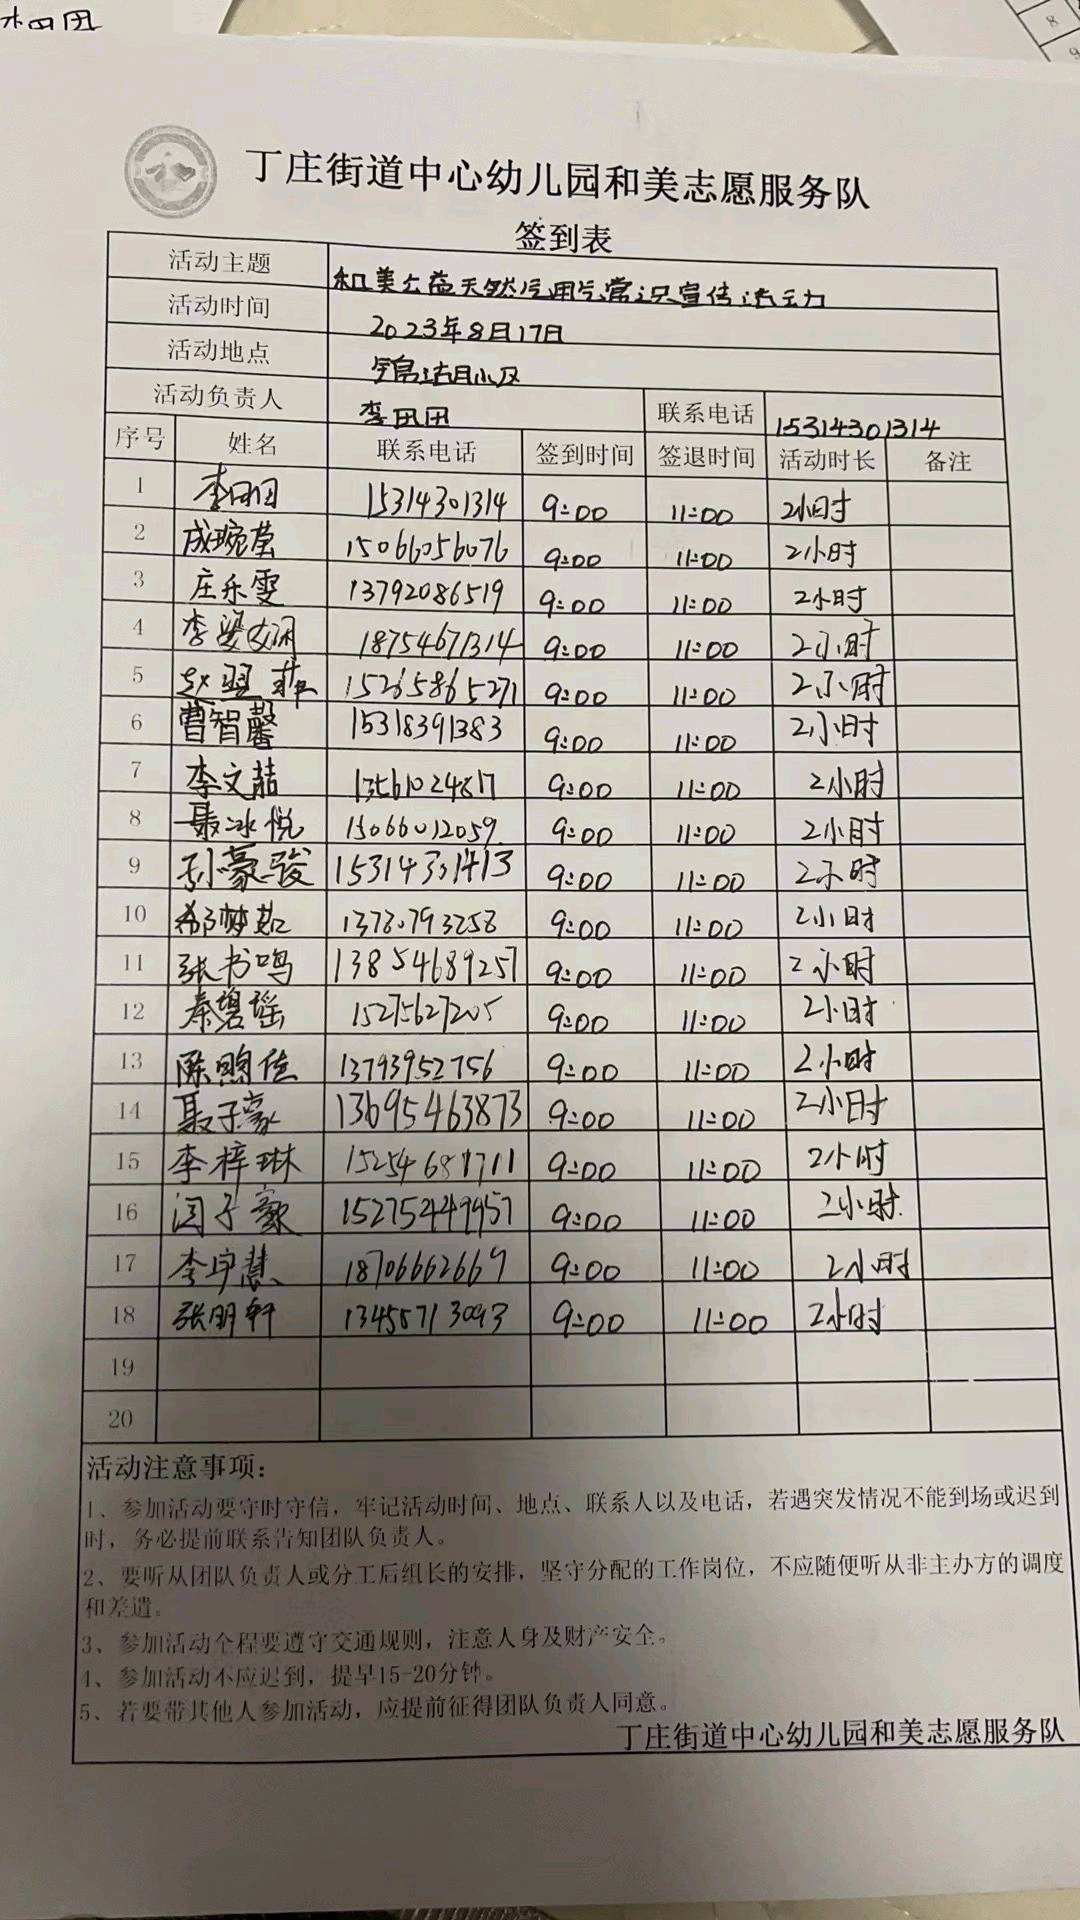 丁庄街道中心幼儿园和美志愿服务队
签到表
活动主题 和美公益天然气用气常识宣传活动
活动时间 2023年8月17日
活动地点 锦湖小区
活动负责人 李田田 联系电话 15314301314
序号 姓名 联系电话 签到时间 签退时间 活动时长 备注
1 李田田 15314301314 9:00 11:00 2小时
2 成琬莹 15066056076 9:00 11:00 2小时
3 庄乐雯 13792086519 9:00 11:00 2小时
4 李姿娴 18754671314 9:00 11:00 2小时
5 赵翌菲 15265865271 9:00 11:00 2小时
6 曹智馨 15318391383 9:00 11:00 2小时
7 李文喆 13561024817 9:00 11:00 2小时
8 聂冰悦 15066012059 9:00 11:00 2小时
9 孙豪骏 15314301413 9:00 11:00 2小时
10 郝梦茹 9:00 11:00 2小时
11 张书鸣 13854689257 9:00 11:00 2小时
12 秦碧瑶 15275627205 9:00 11:00 2小时
13 陈煦佳 13793952756 9:00 11:00 2小时
14 聂子豪 13695463873 9:00 11:00 2小时
15 李梓琳 15254681711 9:00 11:00 2小时
16 闫子歆 15275449957 9:00 11:00 2小时
17 李宇慧 18706662669 9:00 11:00 2小时
18 张明轩 13455713093 9:00 11:00 2小时
19
20
活动注意事项：
1、参加活动要守时守信，牢记活动时间、地点、联系人以及电话，若遇突发情况不能到场或迟到
时，务必提前联系告知团队负责人。
2、要听从团队负责人或分工后组长的安排，坚守分配的工作岗位，不应随便听从非主办方的调度
和差遣。
3、参加活动全程要遵守交通规则，注意人身及财产安全。
4、参加活动不应迟到，提早15-20分钟。
5、若要带其他人参加活动，应提前征得团队负责人同意。
丁庄街道中心幼儿园和美志愿服务队